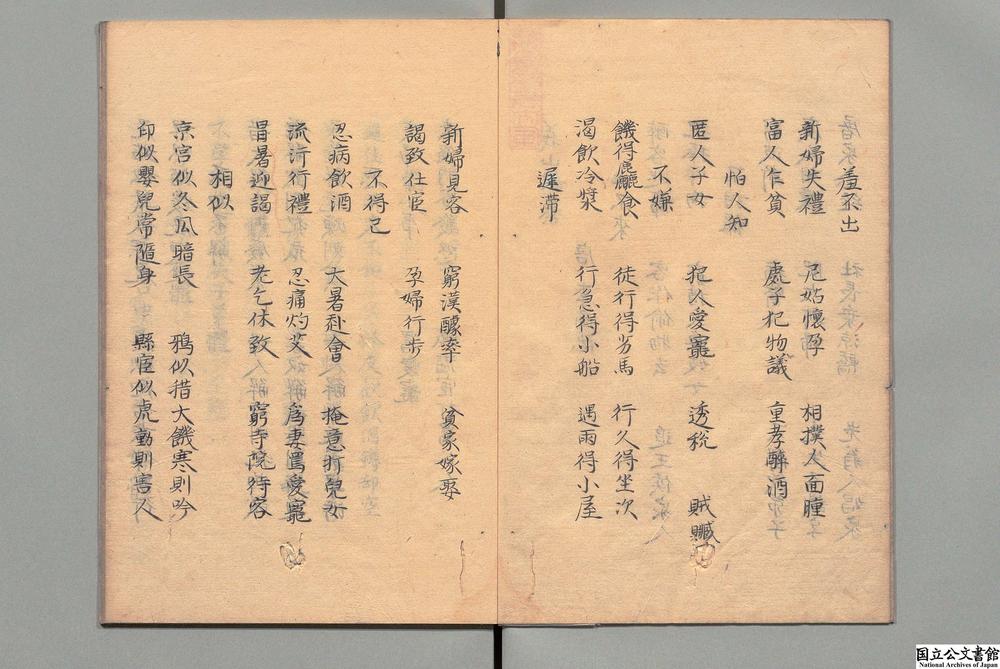 羞不出
新婦失禮 尼姑懷孕 相撲人面腫
富人乍貧 處子犯物議 重孝醉酒
怕人知
匿人子女 犯人愛寵 透稅 賊贓
不嫌
饑得麤食 徒行得劣馬 行久得坐次
渴飲冷漿 行急得小船 遇雨得小屋
遲滯
新婦見客 窮漢醵率 貧家嫁娶
謁致仕官 孕婦行步
不得已
忍病飲酒 大暑赴會 掩意打兒女
流汗行禮 忍痛灼艾 為妻罵愛寵
冒暑迎謁 老乞休致 窮寺院待客
相似
京官似冬瓜暗長 鴉似措大饑寒則吟
印似嬰兒常隨身 縣官似虎動則害人
国立公文書館
National Archives of Japan